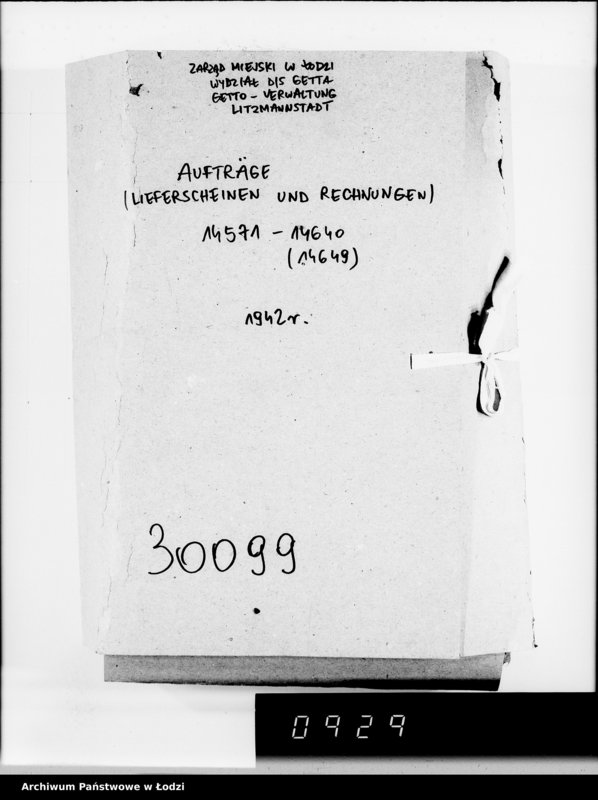 ZARZĄD MIEJSKI W ŁODZI
WYDZIAŁ D/S GETTA
GETTO - VERWALTUNG
LITZMANNSTADT
AUFTRÄGE
(LIEFERSCHEINEN UND RECHNUNGEN)
14571 - 14640
(14649)
1942 r.
30099
0929
Archiwum Państwowe w Łodzi